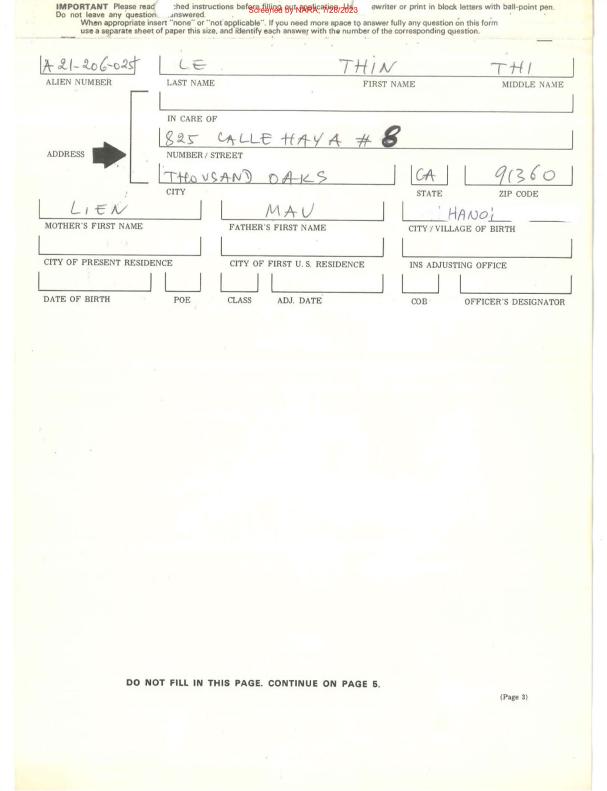 IMPORTANT Please read ched instructions before filling out application. ewriter or print in block letters with ball-point pen.
Screened by NARA, 7/28/2023
Do not leave any question answered.
When appropriate insert "none" or "not applicable". If you need more space to answer fully any question on this form
use a separate sheet of paper this size, and identify each answer with the number of the corresponding question.
A 21-206-025 LE THIN THI
ALIEN NUMBER LAST NAME FIRST NAME MIDDLE NAME
IN CARE OF
825 CALLE HAYA # 8
ADDRESS NUMBER/STREET
THOUSAND OAKS CA 91360
CITY STATE ZIP CODE
LIEN MAU HANOi
MOTHER'S FIRST NAME FATHER'S FIRST NAME CITY/VILLAGE OF BIRTH
CITY OF PRESENT RESIDENCE CITY OF FIRST U. S. RESIDENCE INS ADJUSTING OFFICE
DATE OF BIRTH POE CLASS ADJ. DATE COB OFFICER'S DESIGNATOR
DO NOT FILL IN THIS PAGE. CONTINUE ON PAGE 5.
(Page 3)